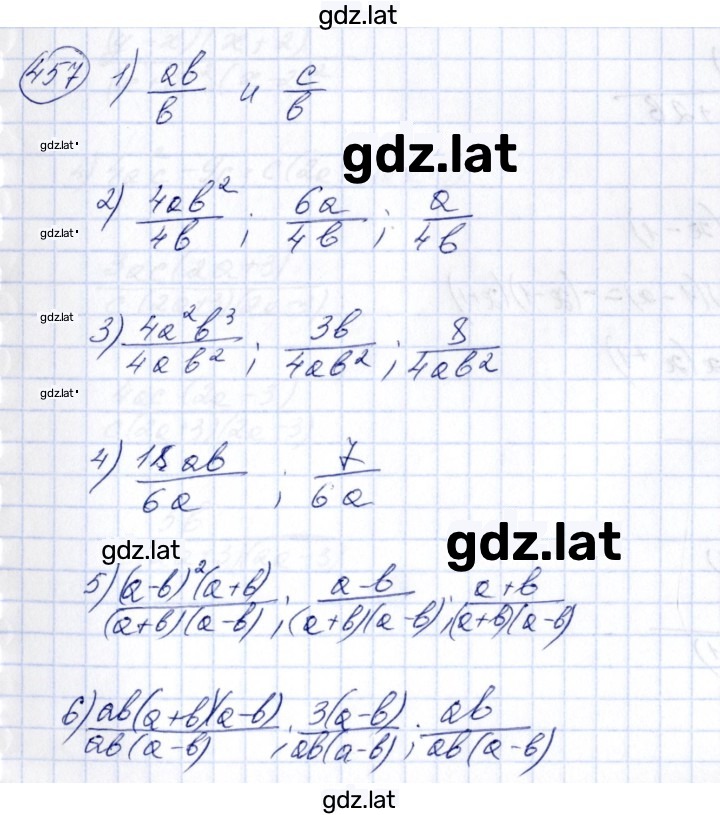 gdz.lat
457 1) ab/b и c/b
gdz.lat
gdz.lat
2) 4ab²/4b ; 6a/4b ; a/4b
gdz.lat
gdz.lat
3) 4a²b³/4ab² ; 3b/4ab² ; 8/4ab²
gdz.lat
4) 18ab/6a ; 7/6a
gdz.lat gdz.lat
5) (a-b)²(a+b)/(a+b)(a-b) ; a-b/(a+b)(a-b) ; a+b/(a+b)(a-b)
6) ab(a+b)(a-b)/ab(a-b) ; 3(a-b)/ab(a-b) ; ab/ab(a-b)
gdz.lat